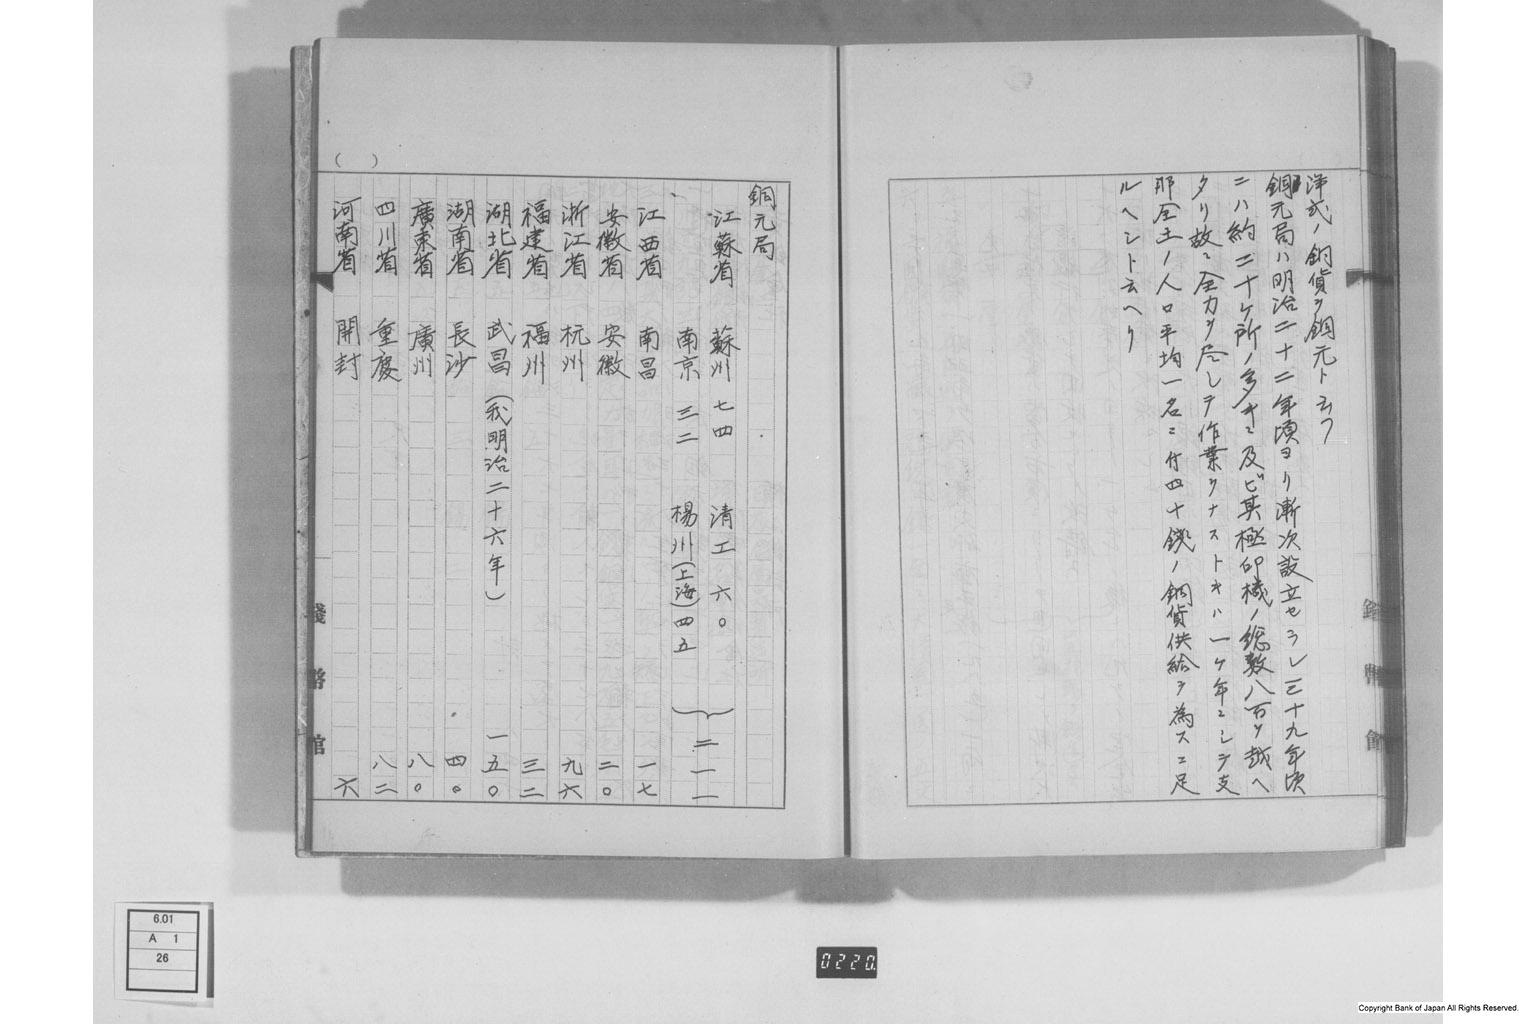 洋式ノ銅貨ヲ銅元ト云フ
銅元局ハ明治二十二年頃ヨリ漸次設立セラレ三十九年頃
ニハ約二十ケ所ノ多キニ及ビ其極印機ノ総数八百ヲ越ヘ
タリ故ニ全力ヲ尽シテ作業ヲナストキハ一ケ年ニシテ支
那全土ノ人口平均一名ニ付四十銭ノ銅貨供給ヲ為スニ足
ルヘシト云ヘリ
銅元局
江蘇省 蘇州 七四 清江 六〇
南京 三二 楊州(上海)四五 二一一
江西省 南昌 一七
安徽省 安徽 二〇
浙江省 杭州 九六
福建省 福州 三二
湖北省 武昌(我明治二十六年) 一五〇
湖南省 長沙 四〇
廣東省 廣州 八〇
四川省 重慶 八二
河南省 開封 六
( )
錢幣館
6.01
A 1
26
0220.
Copyright Bank of Japan All Rights Reserved.